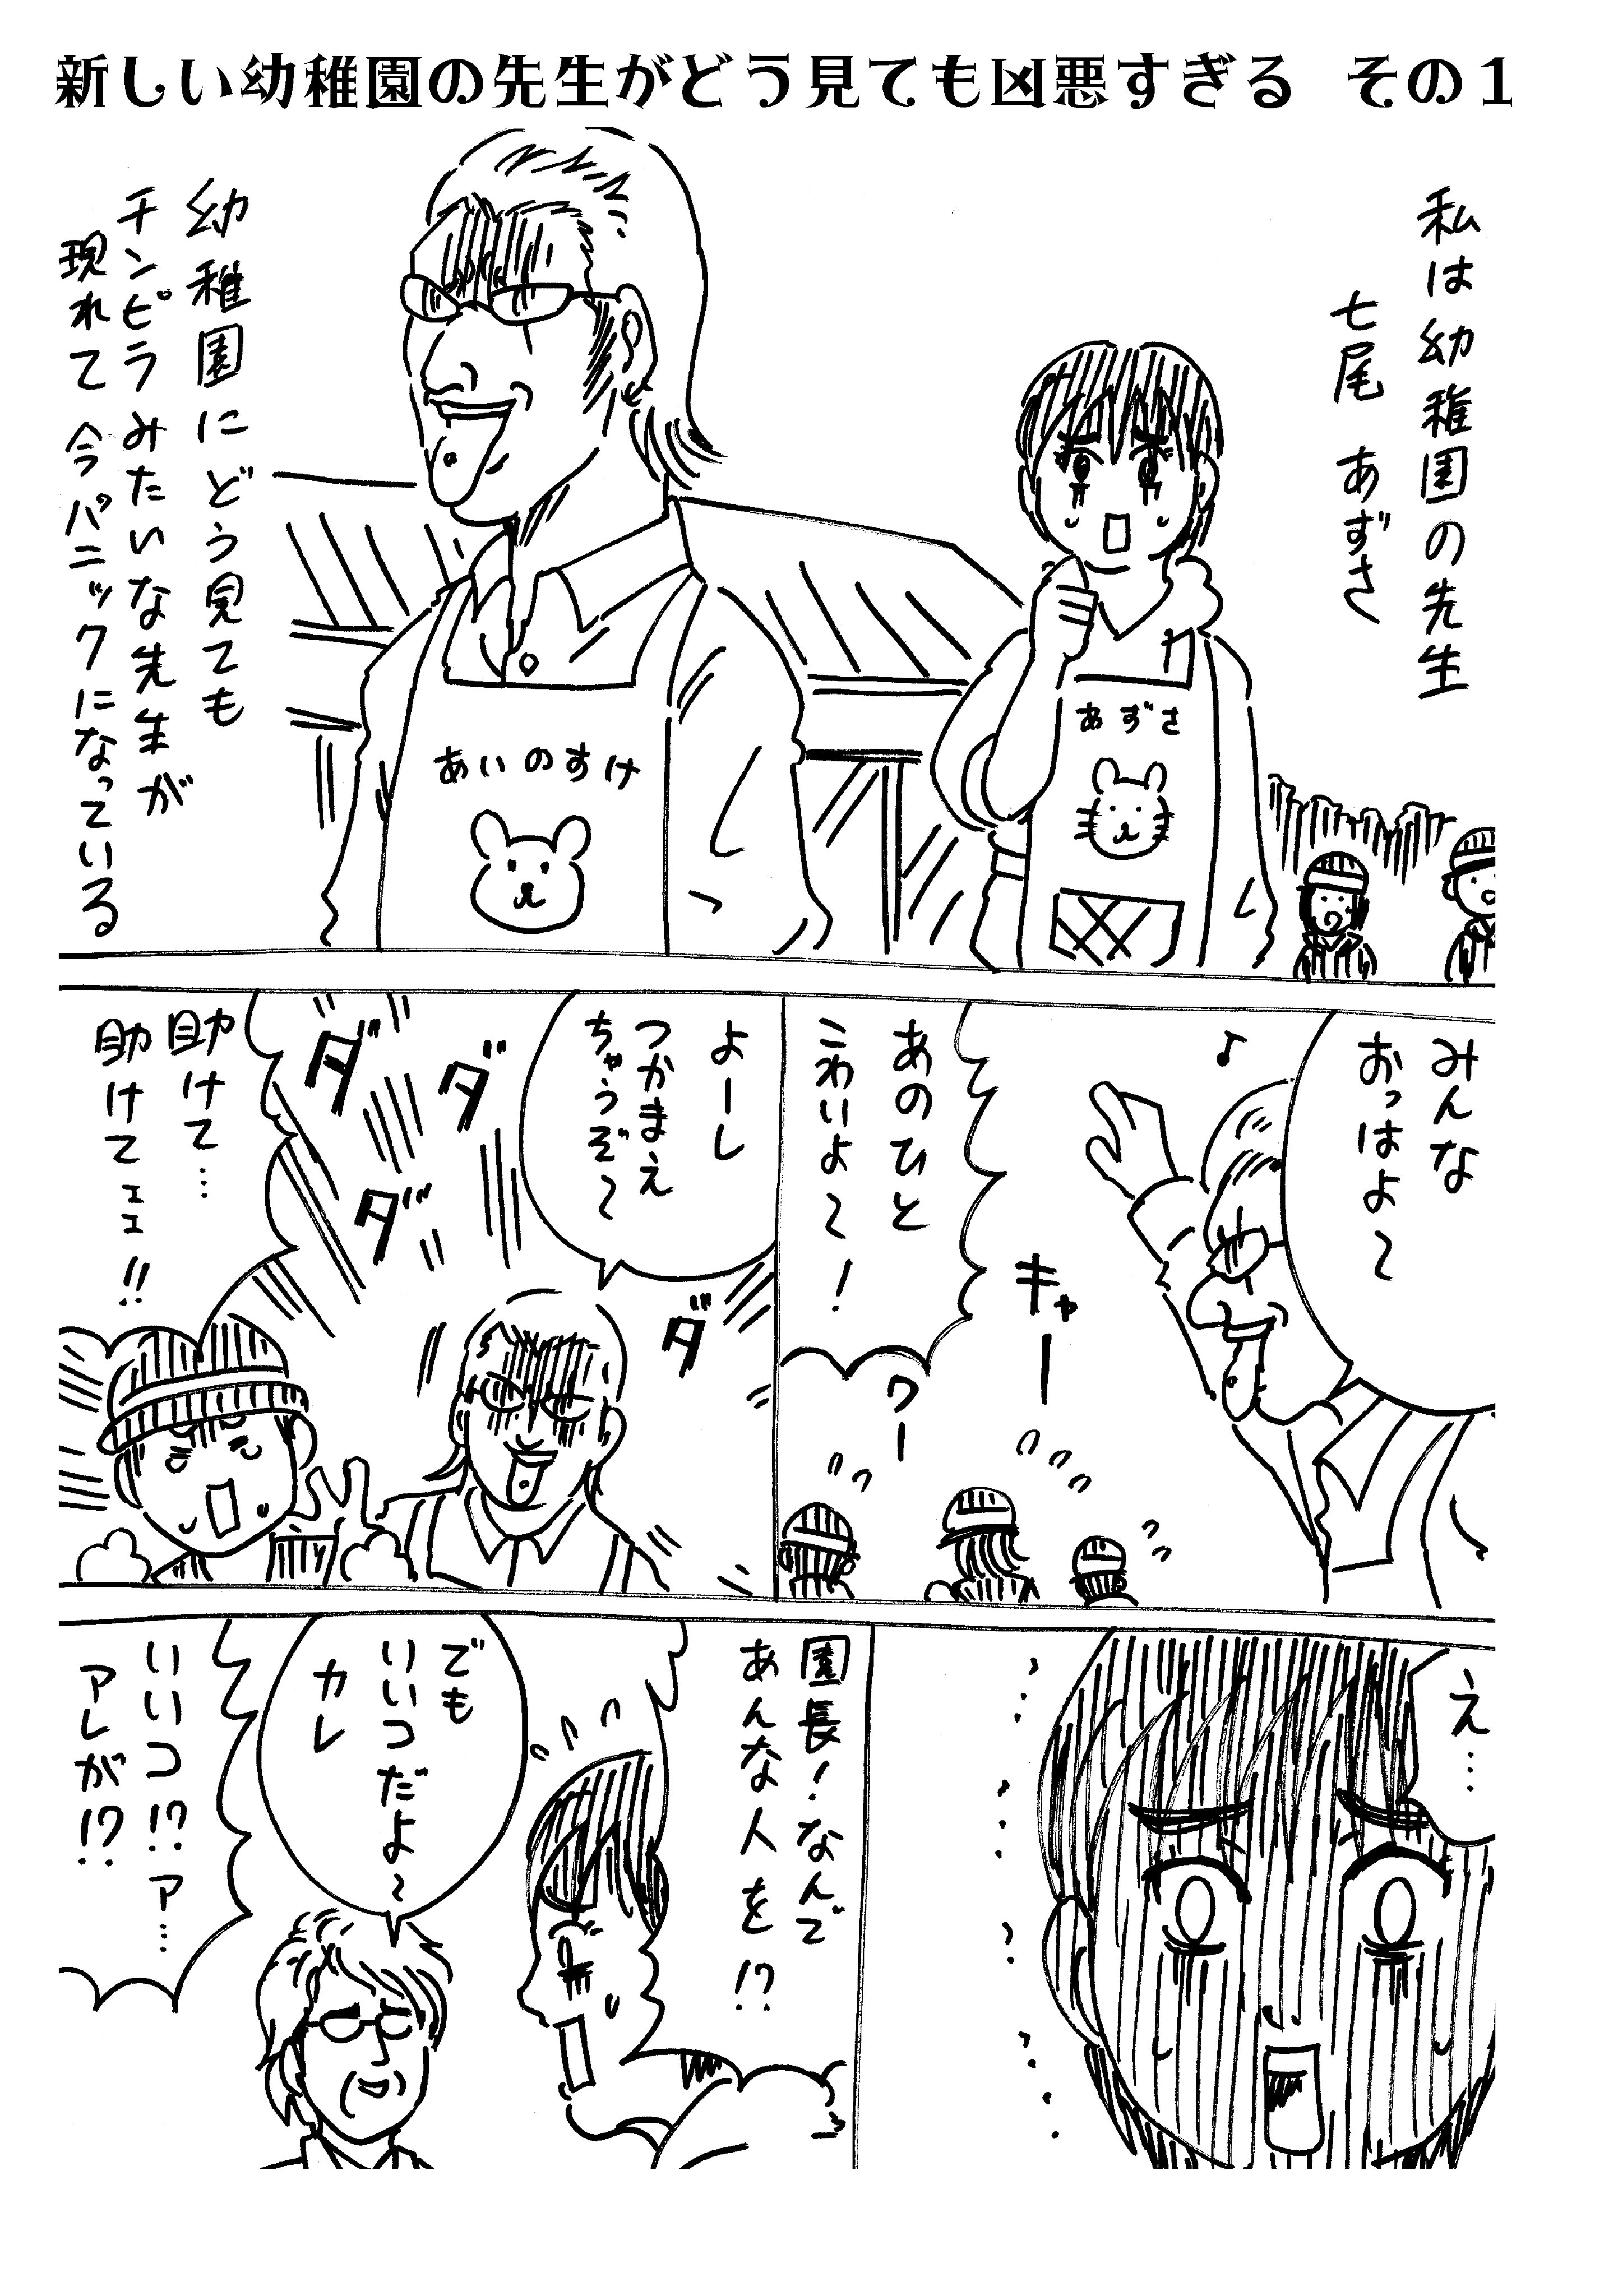 新しい幼稚園の先生がどう見ても凶悪すぎる その1
私は幼稚園の先生
七尾 あずさ
あずさ
あいのすけ
幼稚園にどう見ても
チンピラみたいな先生が
現れて今パニックになっている
みんな
おっはよ〜
♪
キャー
ワー
あのひと
こわいよ〜!
よーし
つかまえ
ちゃうぞ〜
ダ
ダ
ダ
ダ
助けて…
助けてェェ!!
え…
園長!なんで
あんな人を!?
でも
いいコだよ〜
カレ
いいコ!?ア…
アレが!?